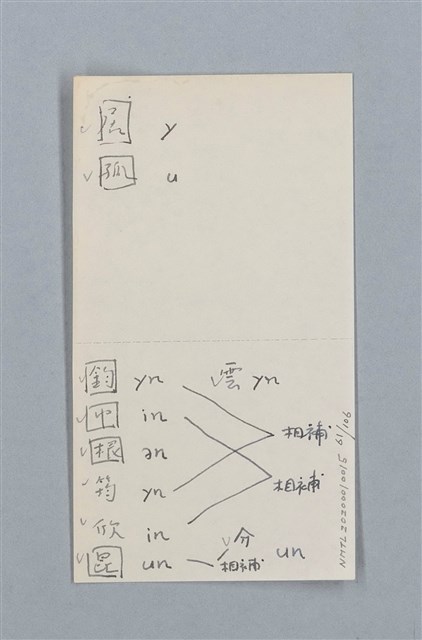 ✓居 y
✓孤 u
✓鈞 yn 雲 yn
✓巾 in
相補
✓根 ən
✓筠 yn 相補
✓欣 in
✓昆 un ✓分 相補 un
NMTL20200010015 19/106